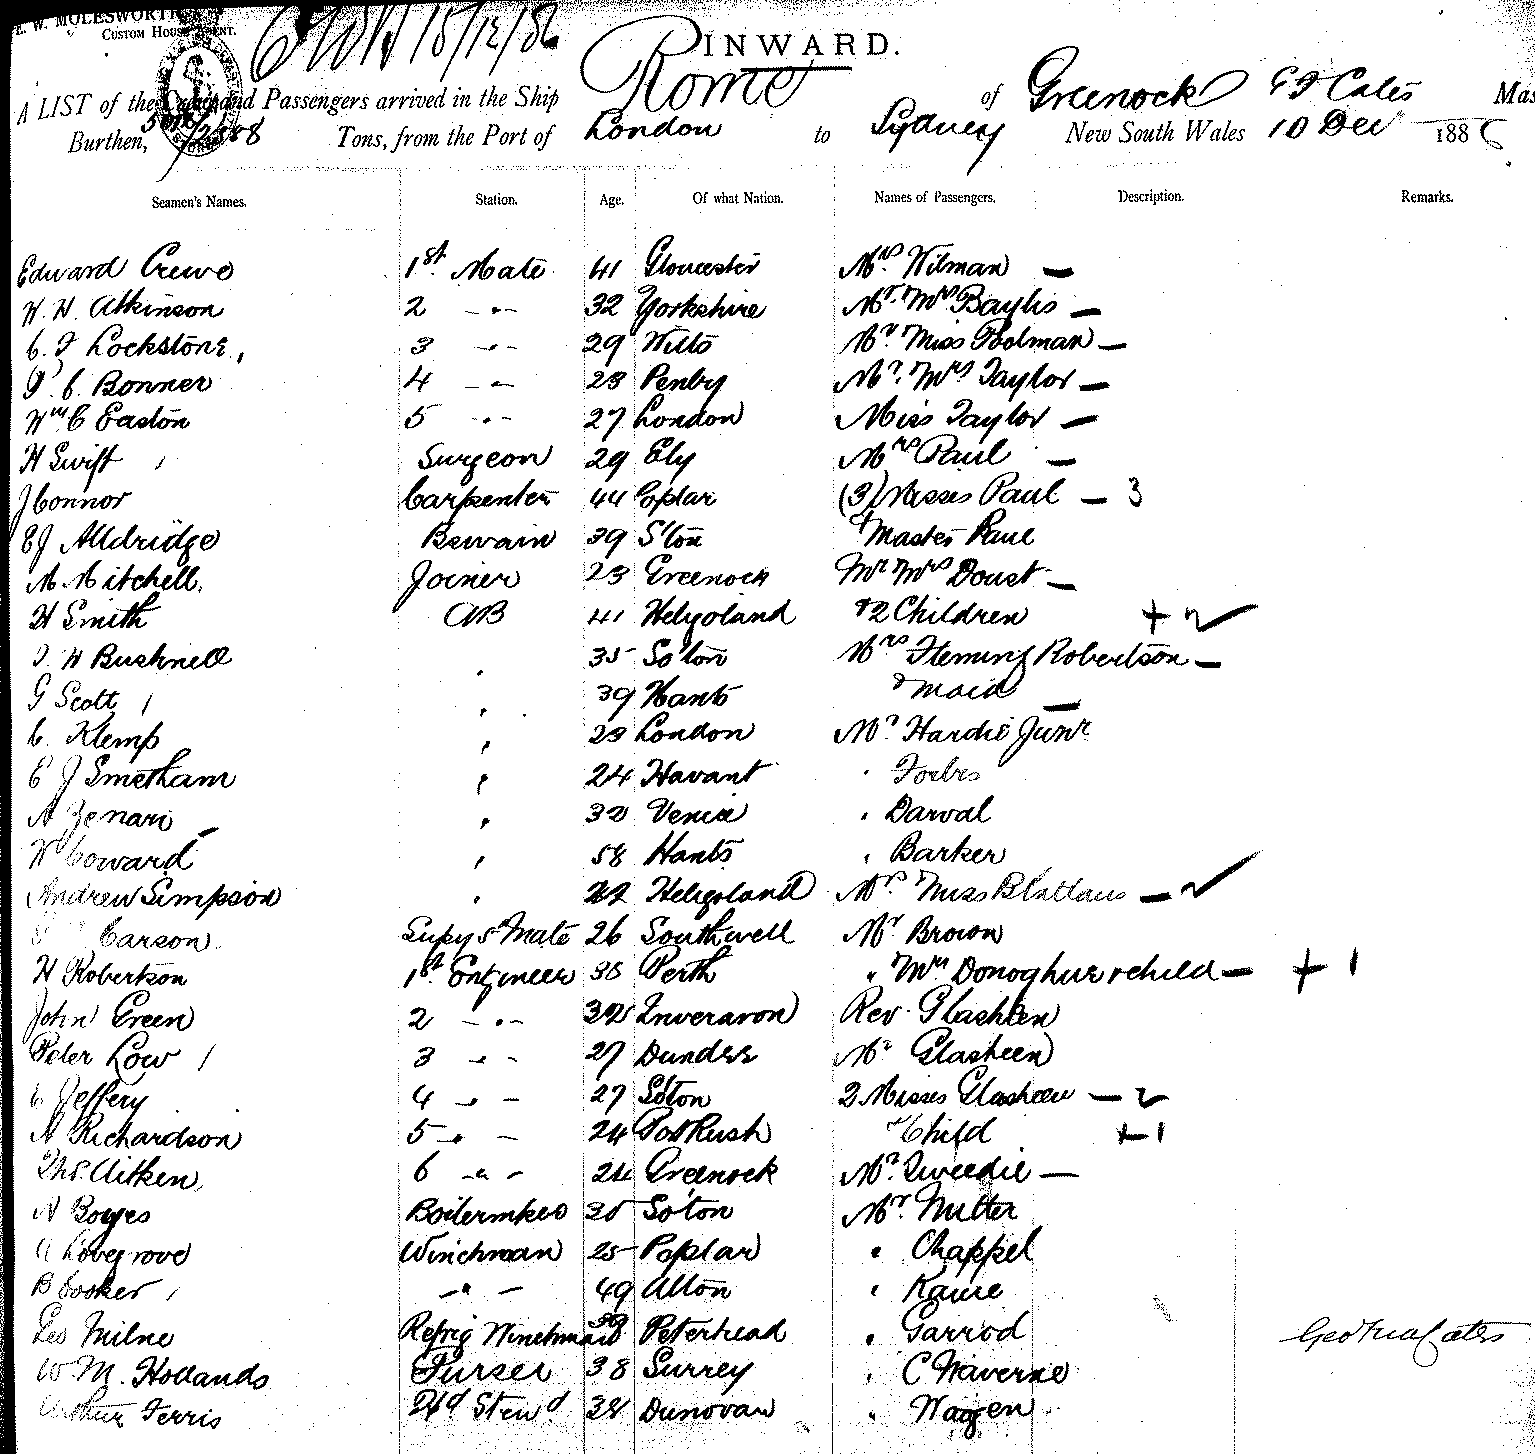 E. W. MOLESWORTH
CUSTOM HOUSE AGENT.
15/12/86
INWARD.
A LIST of the Crew and Passengers arrived in the Ship Rome of Greenock G F Cates Mas
Burthen, 2588 Tons, from the Port of London to Sydney New South Wales 10 Dec 1886
Seamen's Names. Station. Age. Of what Nation. Names of Passengers. Description. Remarks.
Edward Crewe 1st Mate 41 Gloucester Mrs Wilman —
W. H. Atkinson 2 -"- 32 Yorkshire Mr. Mrs Baylis —
C. F Lockstone, 3 -"- 29 Wilts Mrs Miss Poolman —
C. Bonner 4 -"- 23 Penby Mr. Mrs Taylor —
Wm C Easton 5 -"- 27 London Miss Taylor —
H Swift Surgeon 29 Ely Mrs Paul —
J Connor Carpenter 44 Poplar (3) Misses Paul — 3
E J Alldridge Boswain 39 S'ton & Master Paul
M. Mitchell. Joiner 23 Greenock Mr Mrs Doust —
H Smith AB 41 Helgoland & 2 Children + 2 ✓
J. H Bushnell " 35 So'ton Mrs Fleming Robertson —
G Scott " 39 Hants & maid —
C. Klemp " 23 London Mr Hardie Junr
E J Smetham " 24 Havant " Forbes
A Zenari " 32 Venice " Darval
W Coward " 58 Hants " Barker
Andrew Simpson " 22 Heligoland Mrs Miss — ✓
Carson Supy s Mate 26 Southwell Mr Brown
H Robertson 1st Engineer 38 Perth " Mrs Donoghue & child — + 1
John Green 2 -"- 32 Inveravon Rev. Glasheen
Peter Low 3 -"- 27 Dundee Mr Glasheen
Jeffery 4 -"- 27 So'ton 2 Misses Glasheen — 2
A Richardson 5 -"- 24 PortRush " Child + 1
Thos. Aitken 6 -"- 24 Greenock Mr. Tweedie —
A Boyes Boilermker 30 So'ton Mr. Nutter
Lovegrove Winchman 25 Poplar " Chappel
B Cooker -"- 49 Alton "
Geo Milne Refrig Winchman 39 Peterhead " Garrod
W. M. Hollands Purser 38 Surrey " C
Arthur Ferris 2d Stewd 38 Donovan "
Geo Fred Cates